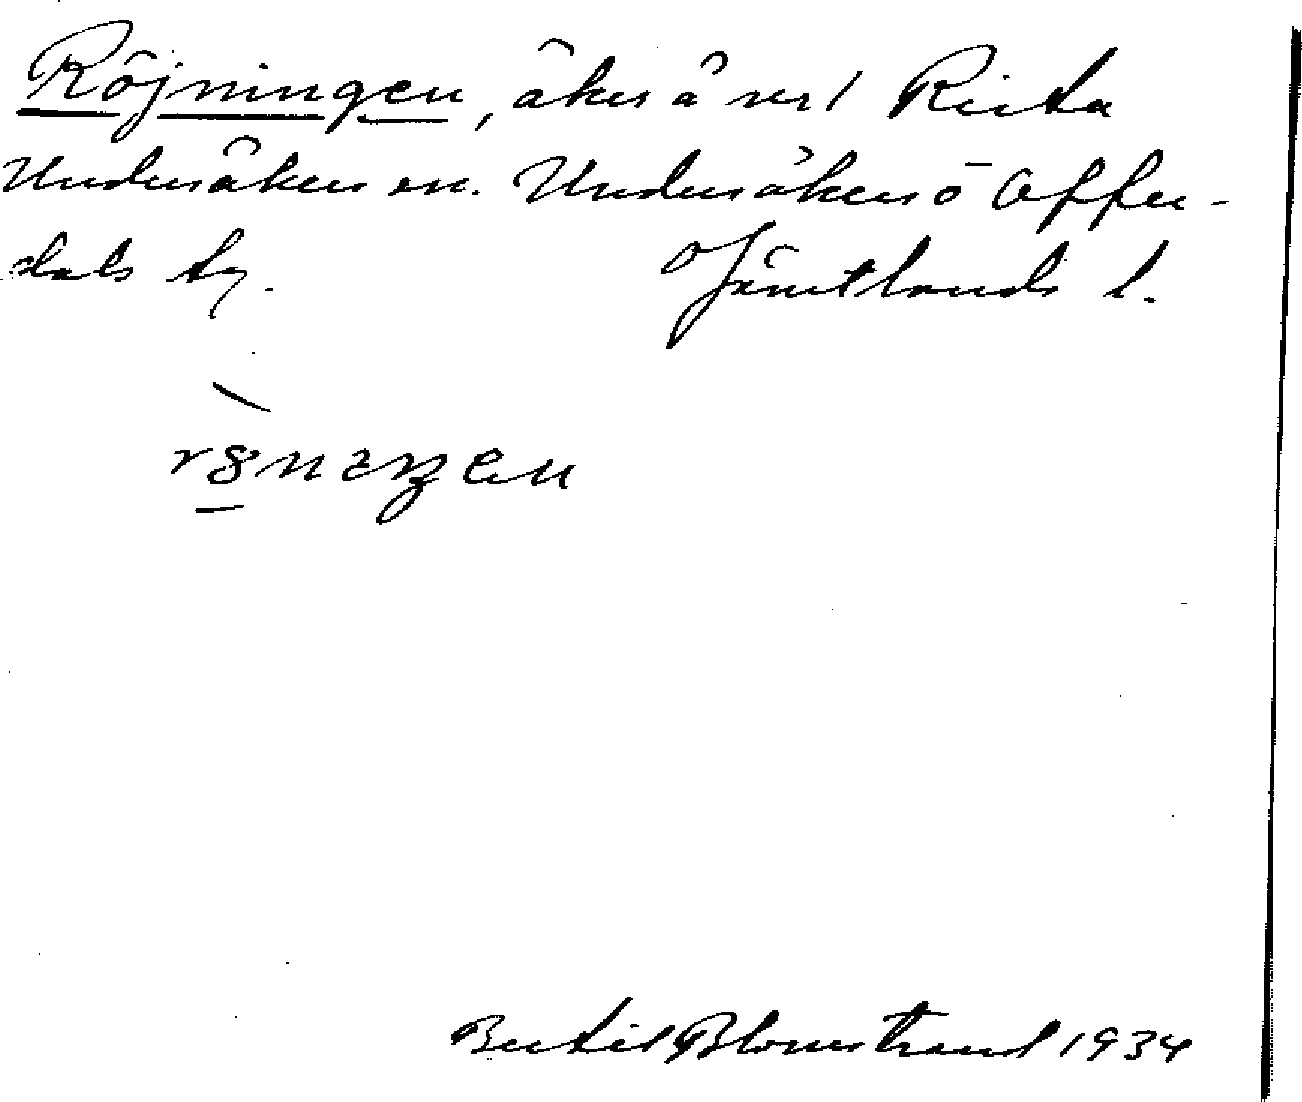 Röjningen, åker å nr 1 Rista
Undersåkers sn. Undersåkers o Offer-
dals tg. Jämtlands l.
Bertil Blomstrand 1934